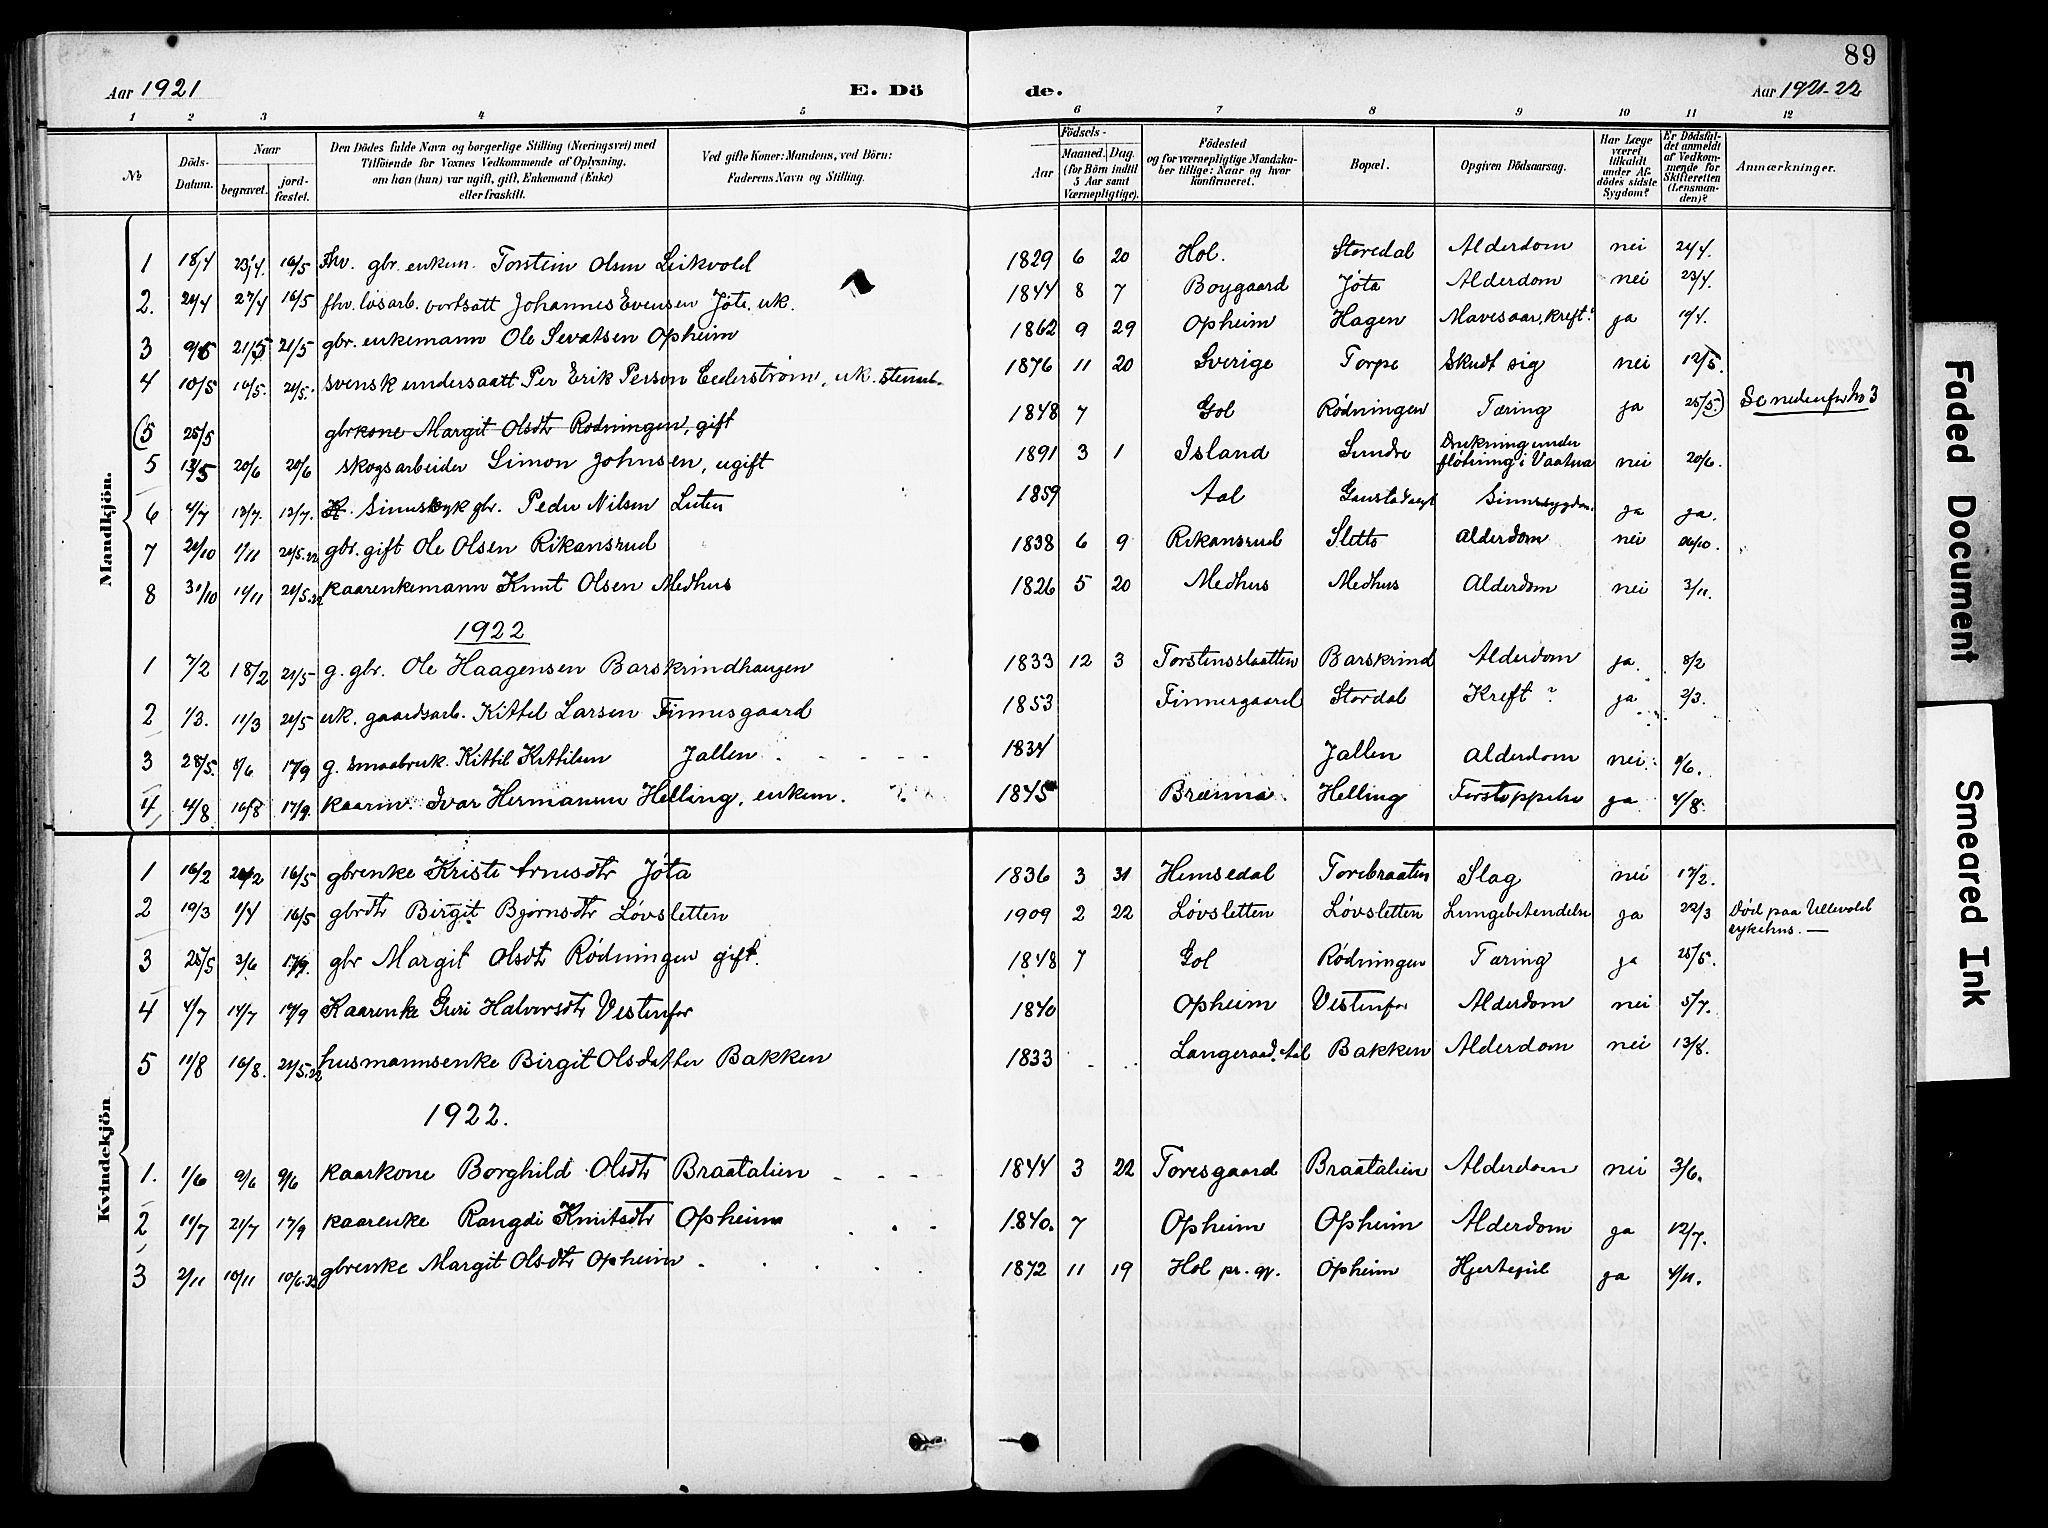 89
Aar 1921 E. Dö de. Aar 1921-22
1 2 3 4 5 6 7 8 9 10 11 12
No
Döds-Datum.
Naar
begravet.
jord-fæstet.
Den Dödes fulde Navn og borgerlige Stilling (Næringsvei) med
Tilföiende for Voxnes Vedkommende af Oplysning,
om han (hun) var ugift, gift, Enkemand (Enke)
eller fraskilt.
Ved gifte Koner: Mandens, ved Börn:
Faderens Navn og Stilling.
Födsels-
Aar
Maaned.
Dag.
(for Börn indtil
5 Aar samt
Værnepligtige).
Födested
og for værnepligtige Mandska-
ber tillige: Naar og hvor
konfirmeret.
Bopæl.
Opgiven Dödsaarsag.
Har Læge
været
tilkaldt
under Af-
dödes sidste
Sygdom?
Er Dödsfal-
det anmeldt
af Vedkom-
mende for
Skifteretten
(Lensman-
den)?
Anmærkninger.
Mandkjön.
1 18/4 23/4 16/5 Fhv. gbr. enkem. Torstein Olsen Leikvold 1829 6 20 Hol. Storedal Alderdom nei 24/4.
2. 24/4 27/4 16/5 fhv. løsarb. bortsatt Johannes Evensen Jøte, uk. 1844 8 7 Boygaard Jøta Alderdom nei 23/4.
3 9/5 21/5 21/5 gbr. enkemann Ole Sevatsen Opheim 1862 9 29 Opheim Hagen Mavesaar, kreft? ja 10/4.
4 10/5 16/5. 21/5. svensk undersaatt Per Erik Person Cederstrøm, uk. 1876 11 20 Sverige Torpe Skudt sig nei 12/5.
(5 25/5 gbrkone Margit Olsdtr Rødningen, gift 1848 7 Gol Rødningen Tæring ja 25/5.) Se nedenfor No 3
5 13/5 20/6 20/6 skogsarbeider Simon Johnsen, ugift 1891 3 1 Island Sundre Drukning under
fløtning i Vaatna nei 20/6.
6 4/7 12/7. 12/7. Sinnssyk gbr. Peder Nilsen Luten 1859 Aal Sinnssygdom. ja ja.
7 24/10 1/11 21/5.22 gbr. gift Ole Olsen Rikansrud 1838 6 9 Rikansrud Sletto Alderdom nei 26/10.
8 31/10 11/11 21/5.22 kaarenkemann Knut Olsen Medhus 1826 5 20 Medhus Medhus Alderdom nei 3/11.
1922
1 7/2 18/2 21/5 g. gbr. Ole Haagensen Barskrindhaugen 1833 12 3 Torstensslaatten Barskrind Alderdom ja. 8/2
2 1/3. 11/3 21/5 uk. gaardsarb. Kittel Larsen Finnesgaard 1853 Finnesgaard Stordal Kreft? ja 2/3.
3 28/5. 8/6 17/9 g. smaabruk. Kittil Kittilsen Jallen 1834 Jallen Alderdom nei. 9/6.
4 4/8 16/8 17/9. kaarm. Ivar Hermansen Helling, enkem. 1845 Brænna. Helling Forstoppelse ja 4/8.
Kvindekjön
1 16/2 26/2 16/5 gbrenke Kristi Arnesdtr Jøta 1836 3 31 Hemsedal Torebraaten Slag nei 17/2.
2 19/3 1/4 16/5 gbrdtr Birgit Bjørnsdtr Løvsletten 1909 2 22 Løvsletten Løvsletten Lungebetendelse ja 22/3 Død paa Ullevold
sykehus. —
3 25/5 3/6 17/9. gbr Margit Olsdtr Rødningen gift. 1848 7 Gol Rødningen Tæring ja 25/5.
4 4/7 14/7 17/9 Kaarenke Guri Halvorsdtr Vestenfor 1840 Opheim Vestenfor Alderdom nei 5/7.
5 11/8 16/8. 21/5.22 husmannsenke Birgit Olsdatter Bakken 1833 Langeraad, Aal Bakken Alderdom nei 13/8.
1922.
1. 1/6 9/6 9/6 kaarkone Borghild Olsdtr Braatalien 1844 3 22 Toresgaard Braatalien Alderdom nei 3/6.
2 11/7 21/7 17/9 kaarenke Rangdi Knutsdtr Opheim 1840. 7 Opheim Opheim Alderdom ja 12/7.
3 2/11 10/11 10/6.23 gbrenke Margit Olsdtr Opheim 1872 11 19 Hol pr. gj. Opheim Hjertefeil ja 4/11.
Faded Document
Smeared Ink